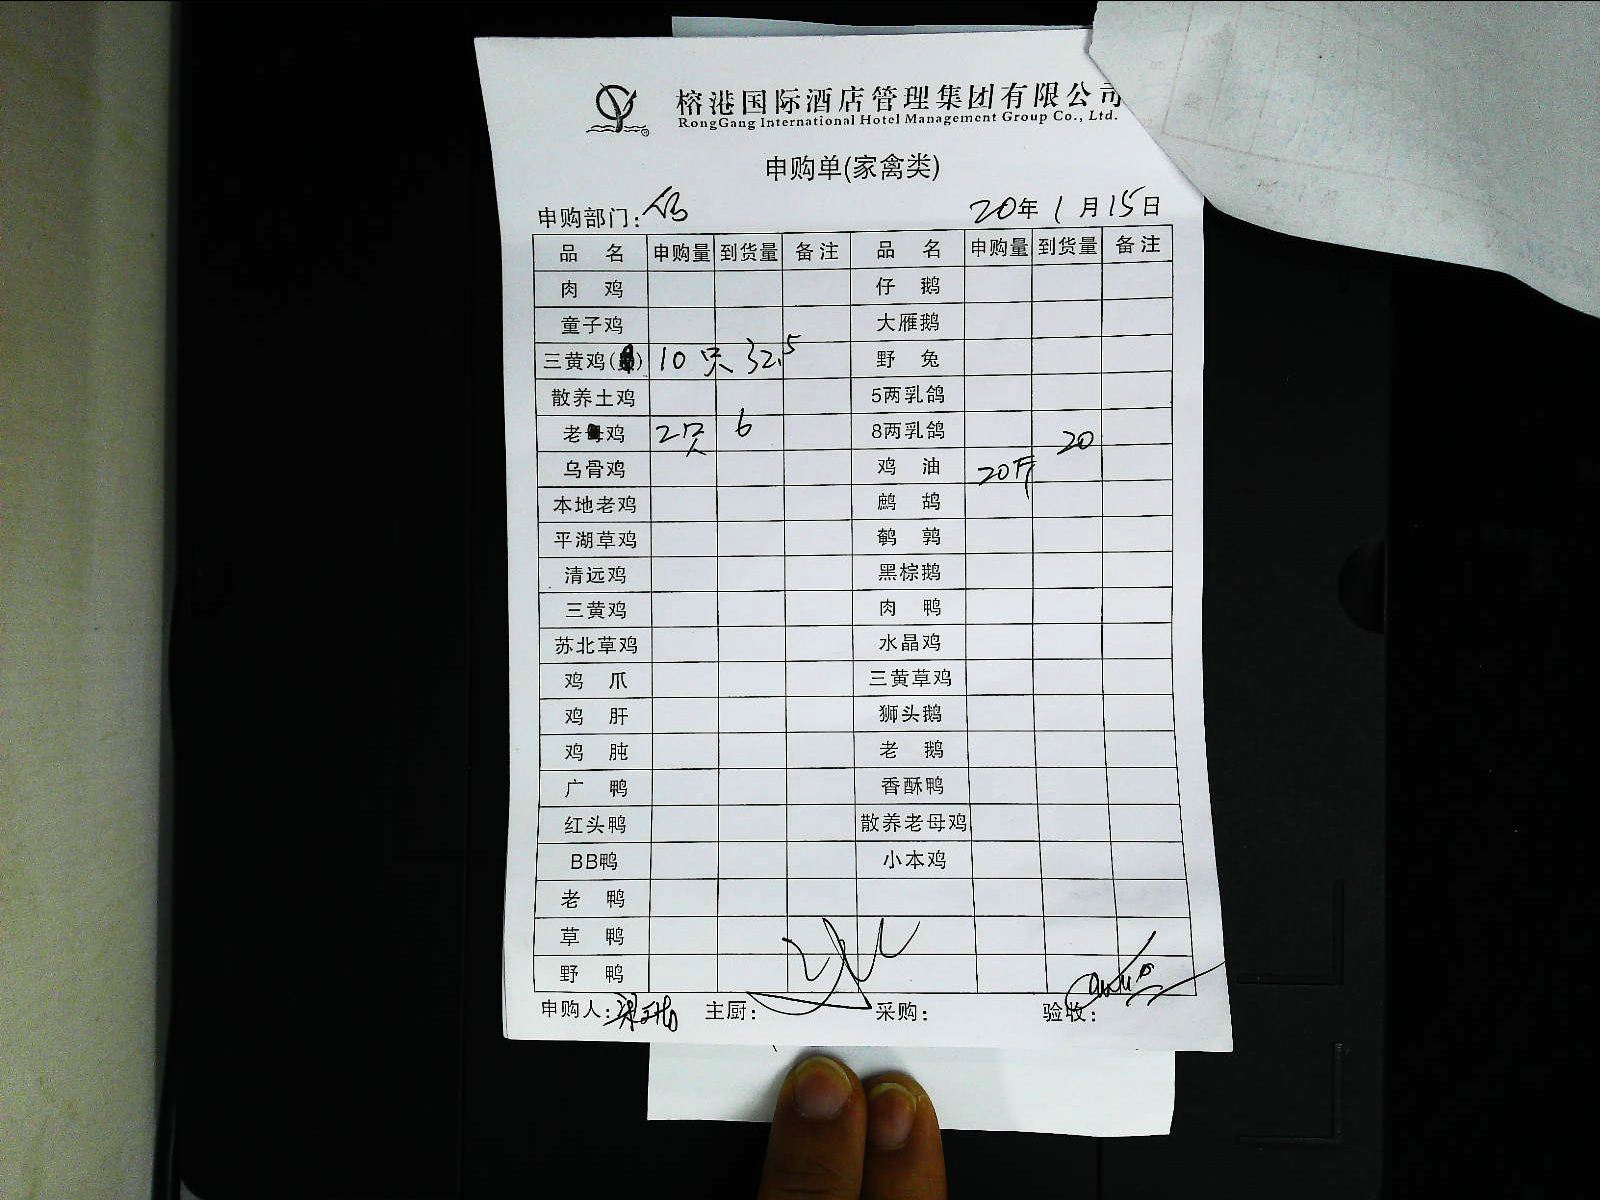 榕港国际酒店管理集团有限公司
RongGang International Hotel Management Group Co., Ltd.
申购单(家禽类)
申购部门: 20年1月15日
品名 申购量 到货量 备注 品名 申购量 到货量 备注
肉鸡 仔鹅
童子鸡 大雁鹅
三黄鸡() 10只 32.5 野兔
散养土鸡 5两乳鸽
老鸡 2只 6 8两乳鸽
乌骨鸡 鸡油 20斤 20
本地老鸡 鹧鸪
平湖草鸡 鹌鹑
清远鸡 黑棕鹅
三黄鸡 肉鸭
苏北草鸡 水晶鸡
鸡爪 三黄草鸡
鸡肝 狮头鹅
鸡肫 老鹅
广鸭 香酥鸭
红头鸭 散养老母鸡
BB鸭 小本鸡
老鸭
草鸭
野鸭
申购人: 主厨: 采购: 验收: